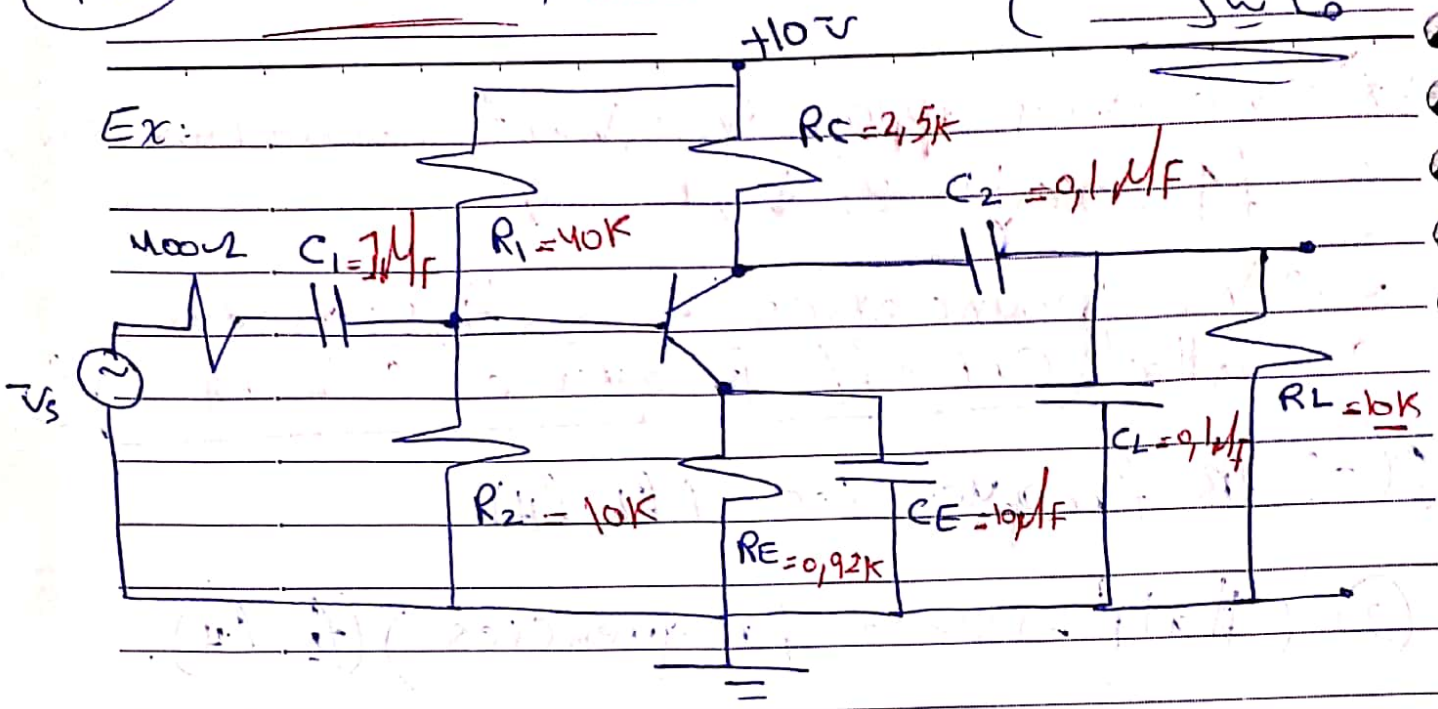 +10V
Ex:
RC=2,5K
C2=0,1μF
400Ω
C1=1μF
R1=40K
Vs
RL=10K
CL=0,1μF
R2=10K
CE=10μF
RE=0,92K